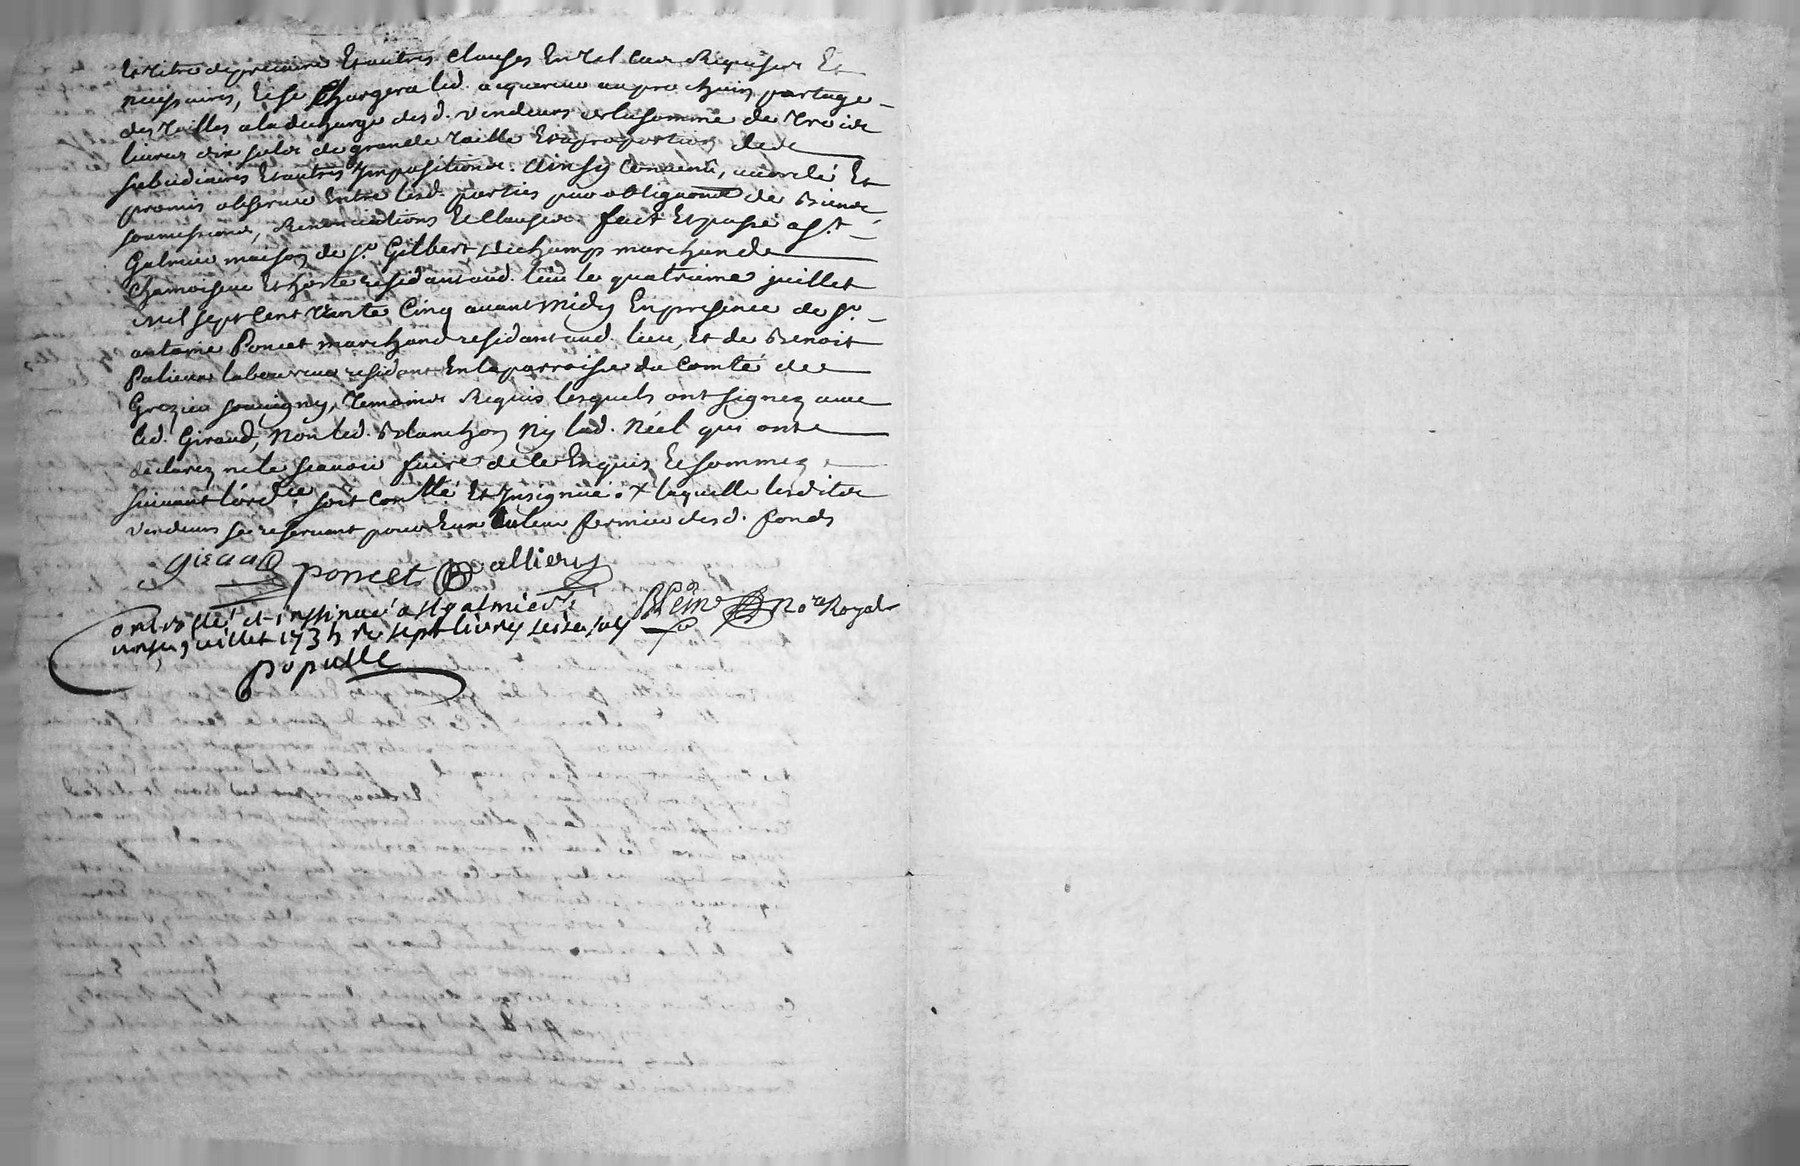 Et titre de precaire Et autres clauses En tel cas Requises Et
necessaires, Et se Chargera led. acquereur au prochain partage
des tailles a la decharge desd. vendeurs de la somme de treize
livres dix sols de grande taille Et a proportion de
subcidiaires Et autres Impositions. Ainsy Convenu, accordé Et
promis observer Entre lesd. parties par obligaõns de Biens,
soumissions, Renonciations Et Clauses. fait Et passé a St
Galmier maison de Sr. Gilbert Dechamps marchand
Chamoiseur Et hoste residant aud. lieu le quatrieme juillet
Mil sept Cent trente Cinq avant Midy En presence de Sr.
antoine Poncet marchand residant aud. lieu, Et de Benoit
Palieur laboureur residant En la parroisse du Comté de
Grezieu souvigny, temoins Requis lesquels ont signez avec
led. Giraud, Non led. Blanchon Ny lad. Néel qui ont
declarez ne le scavoir faire de ce Enquis Et sommez
suivant l'ordce. soit conllé Et Insignué. x laquelle lesdites
vendeurs se reservant pour Eux Ou leur fermier desd. fonds
giraud poncet Pallieur
No.re Royal
Conterollé et inssinué a st galmier le
juillet 1735 R. sept livres seize sols
populle